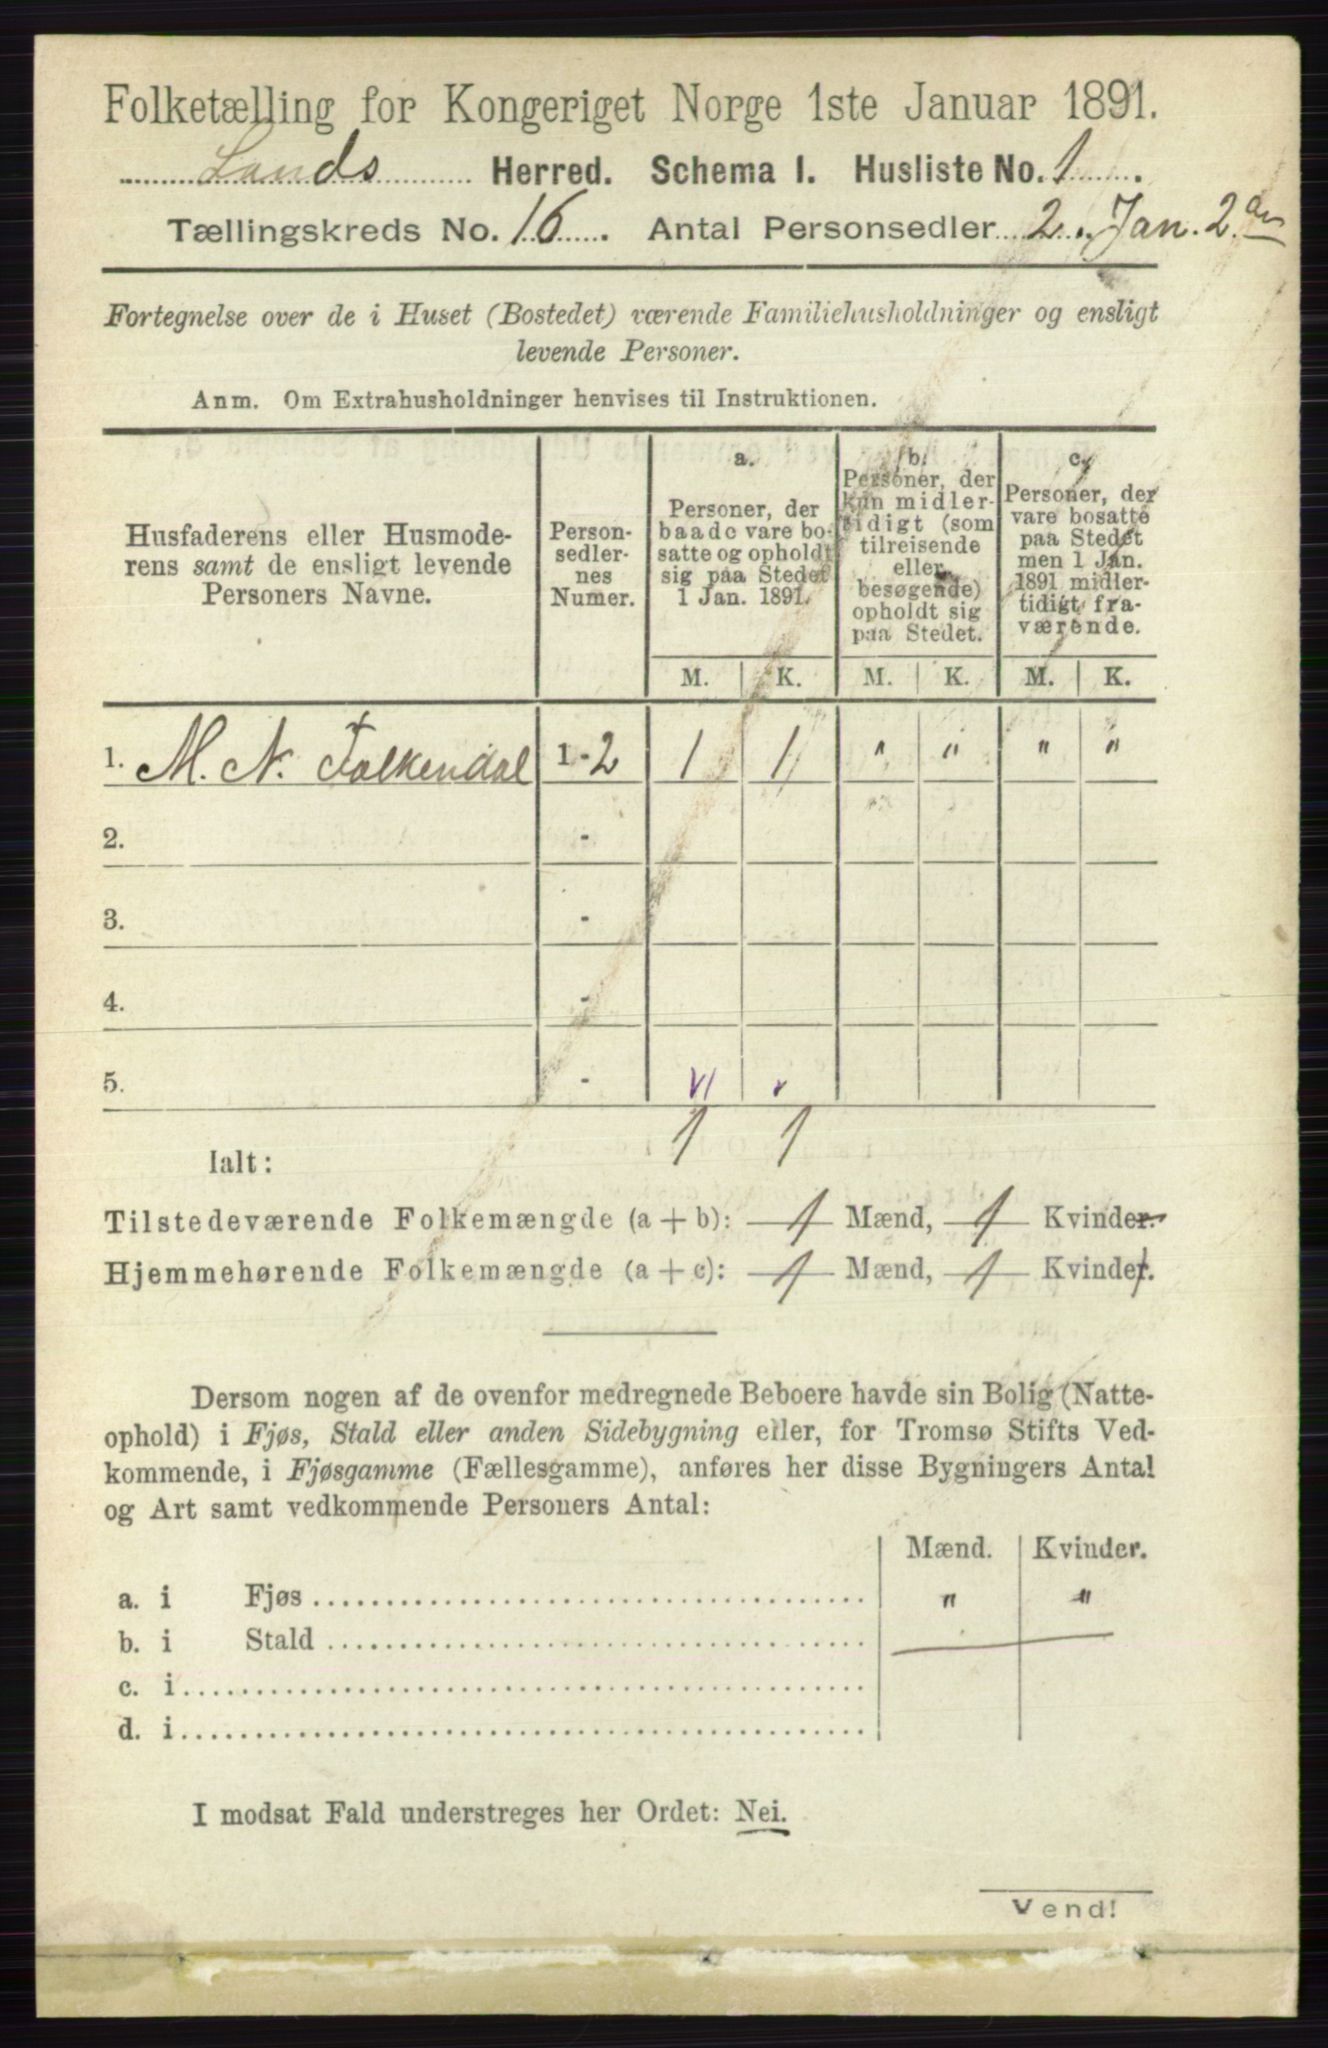 Folketælling for Kongeriget Norge 1ste Januar 1891.
Sands Herred. Schema I. Husliste No. 1.
Tællingskreds No. 16. Antal Personsedler 2. Jan. 2
Fortegnelse over de i Huset (Bostedet) værende Familiehusholdninger og ensligt
levende Personer.
Anm. Om Extrahusholdninger henvises til Instruktionen.
Husfaderens eller Husmode-
rens samt de ensligt levende
Personers Navne.
Person-
sedler-
nes
Numer.
a.
Personer, der
baade vare bo-
satte og opholdt
sig paa Stedet
1 Jan. 1891.
b.
Personer, der
kun midler-
tidigt (som
tilreisende
eller
besøgende)
opholdt sig
paa Stedet.
c.
Personer, der
vare bosatte
paa Stedet
men 1 Jan.
1891 midler-
tidigt fra-
værende.
M. K. M. K. M. K.
1. M. N. Falkendal 1 - 2 1 1 " " " "
2. -
3. -
4. -
5. -
Ialt: 1 1
Tilstedeværende Folkemængde (a + b): 1 Mænd, 1 Kvinder.
Hjemmehørende Folkemængde (a + c): 1 Mænd, 1 Kvinder.
Dersom nogen af de ovenfor medregnede Beboere havde sin Bolig (Natte-
ophold) i Fjøs, Stald eller anden Sidebygning eller, for Tromsø Stifts Ved-
kommende, i Fjøsgamme (Fællesgamme), anføres her disse Bygningers Antal
og Art samt vedkommende Personers Antal:
Mænd. Kvinder.
a. i Fjøs " "
b. i Stald
c. i
d. i
I modsat Fald understreges her Ordet: Nei.
Vend!